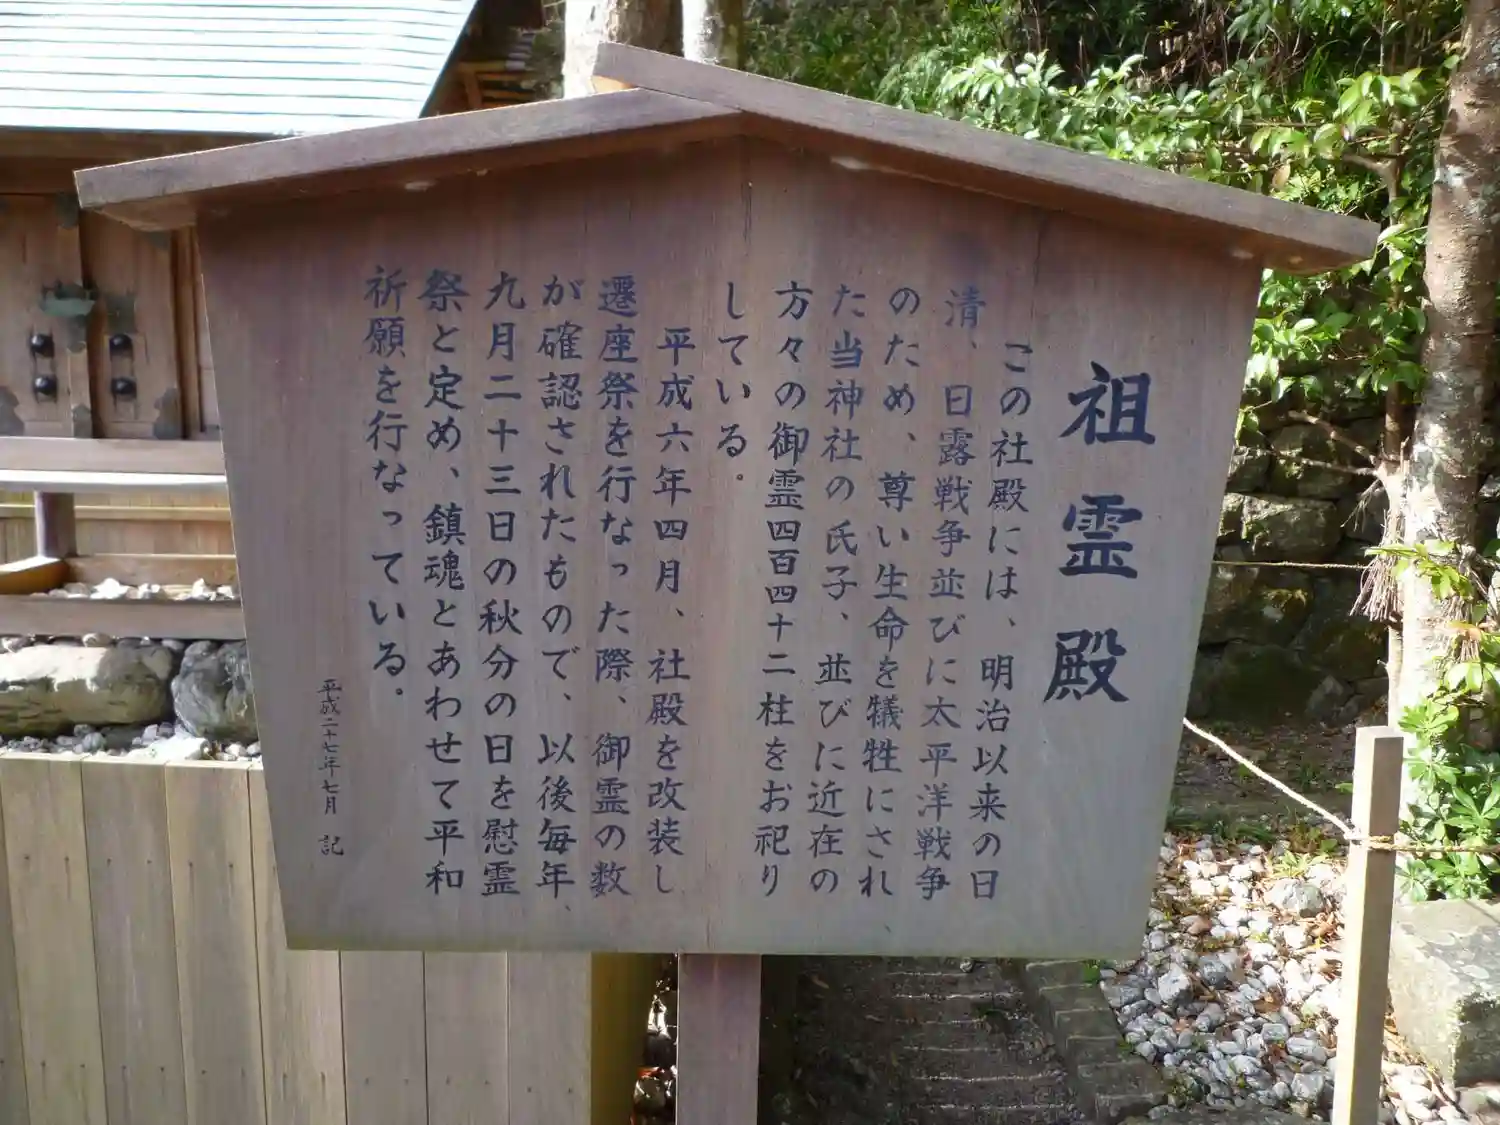 祖霊殿
この社殿には、明治以来の日
清、日露戦争並びに太平洋戦争
のため、尊い生命を犠牲にされ
た当神社の氏子、並びに近在の
方々の御霊四百四十二柱をお祀り
している。
平成六年四月、社殿を改装し、
遷座祭を行なった際、御霊の数
が確認されたもので、以後毎年、
九月二十三日の秋分の日を慰霊
祭と定め、鎮魂とあわせて平和
祈願を行なっている。
平成二十七年七月 記